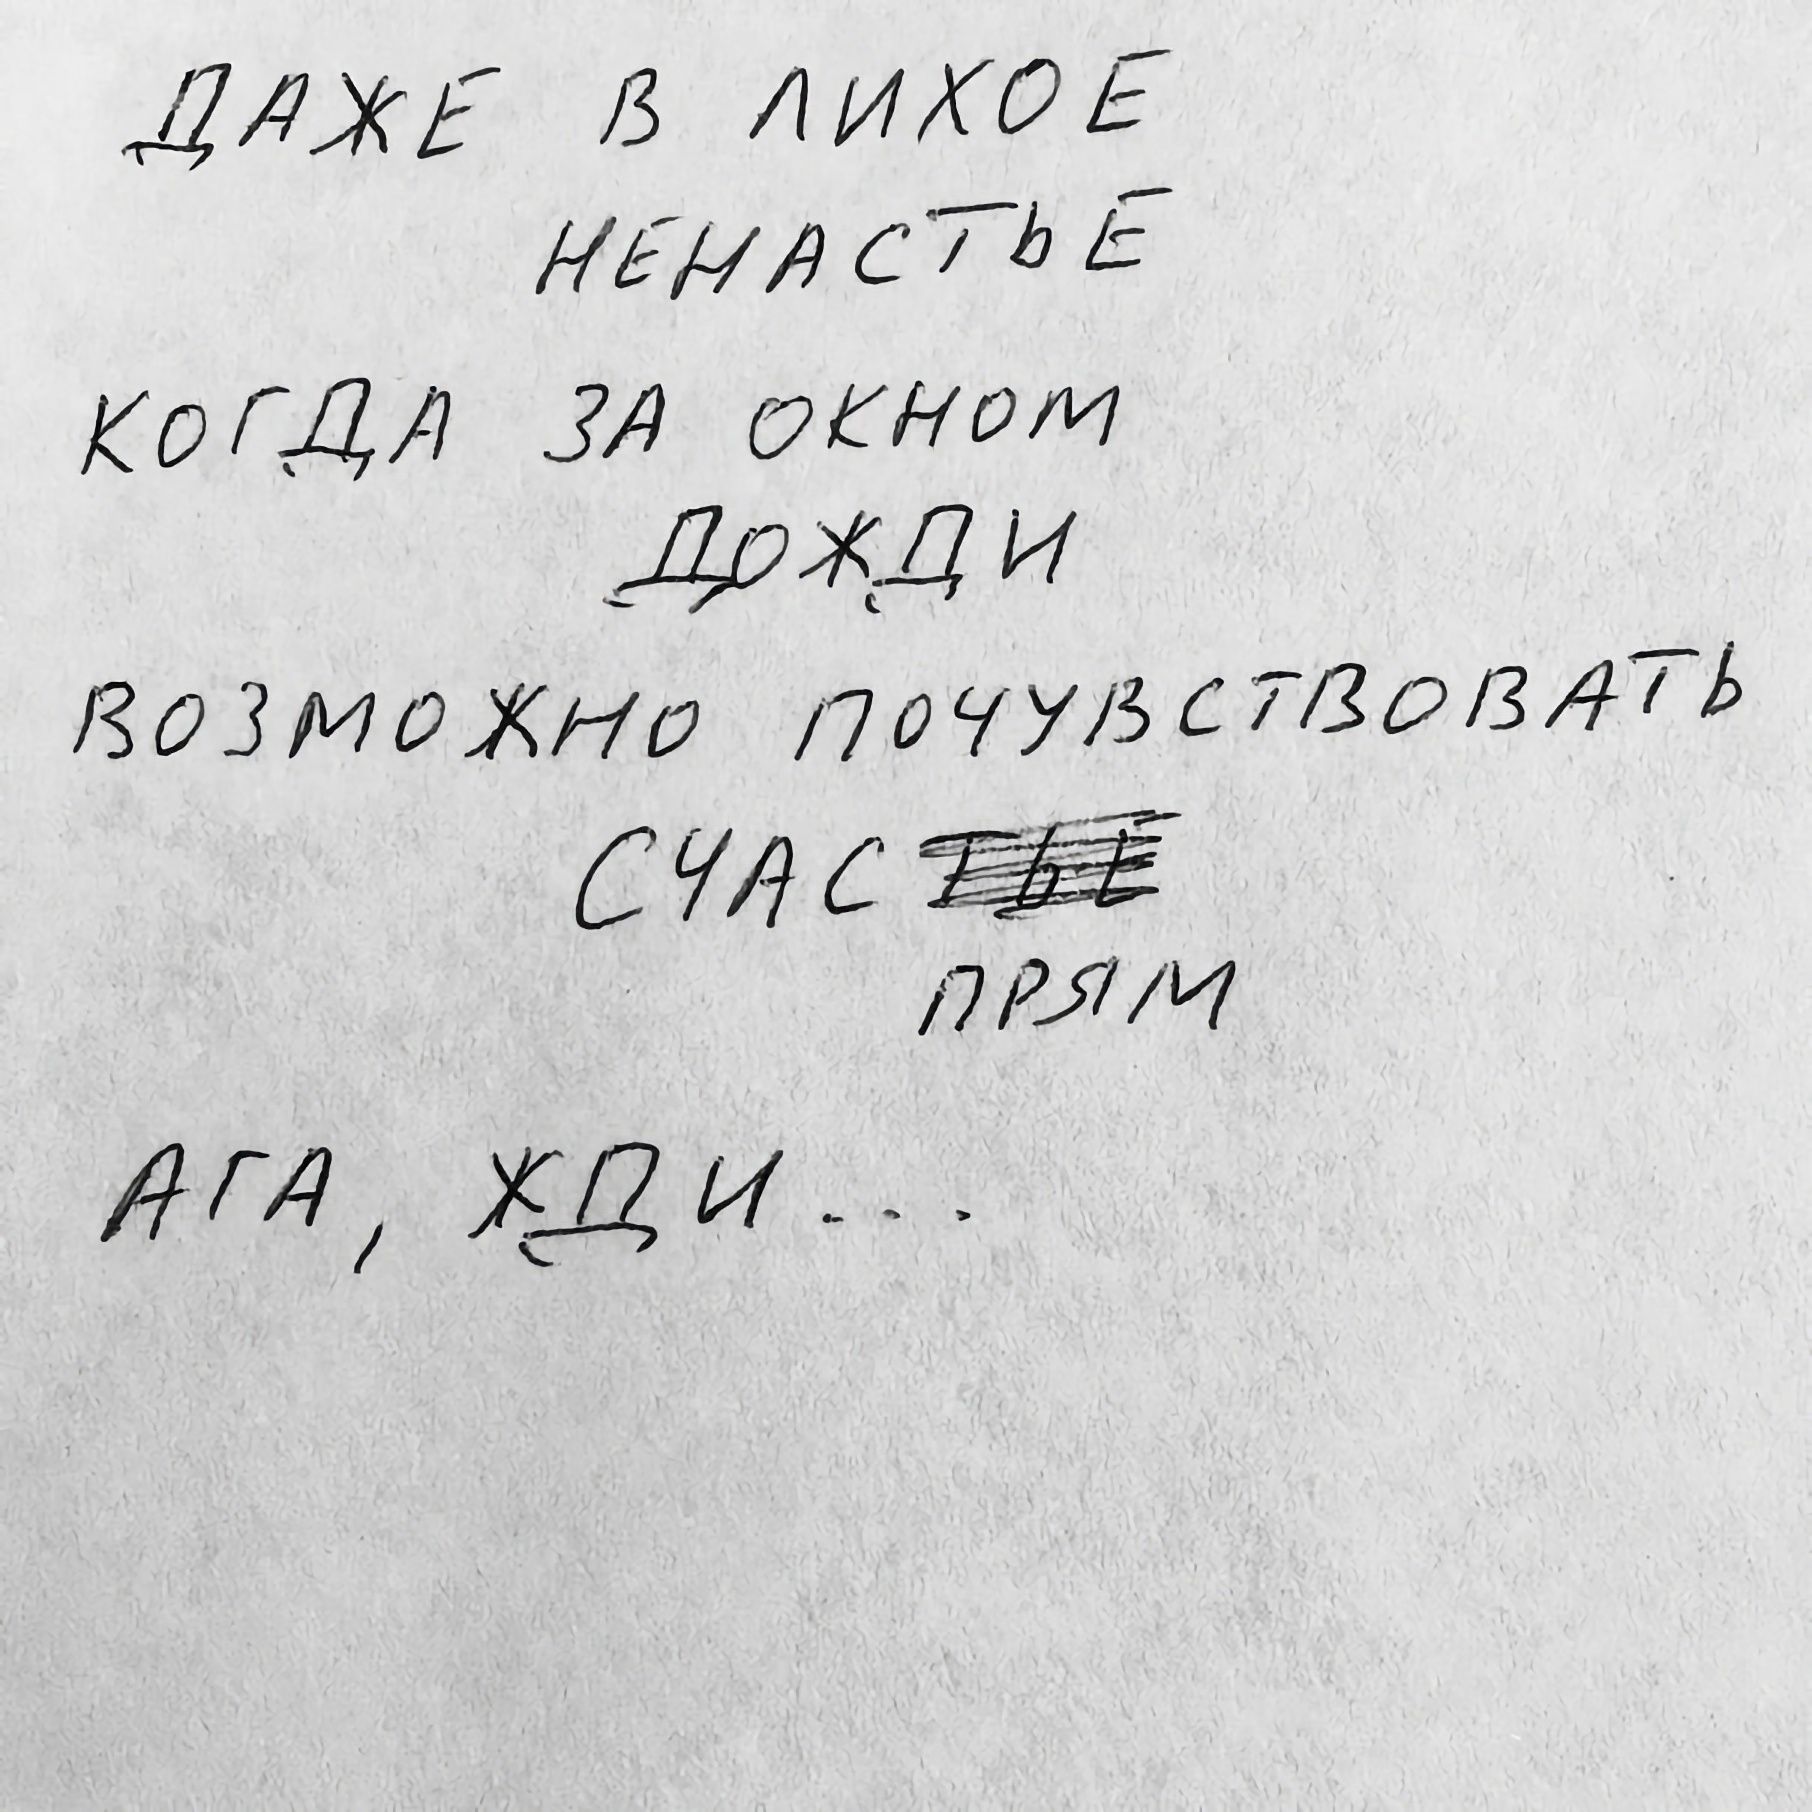 ДАЖЕ В ЛИХОЕ
НЕНАСТЬЕ
КОГДА ЗА ОКНОМ
ДОЖДИ
ВОЗМОЖНО ПОЧУВСТВОВАТЬ
СЧАСТЬЕ
ПРЯМ
АГА, ЖДИ...